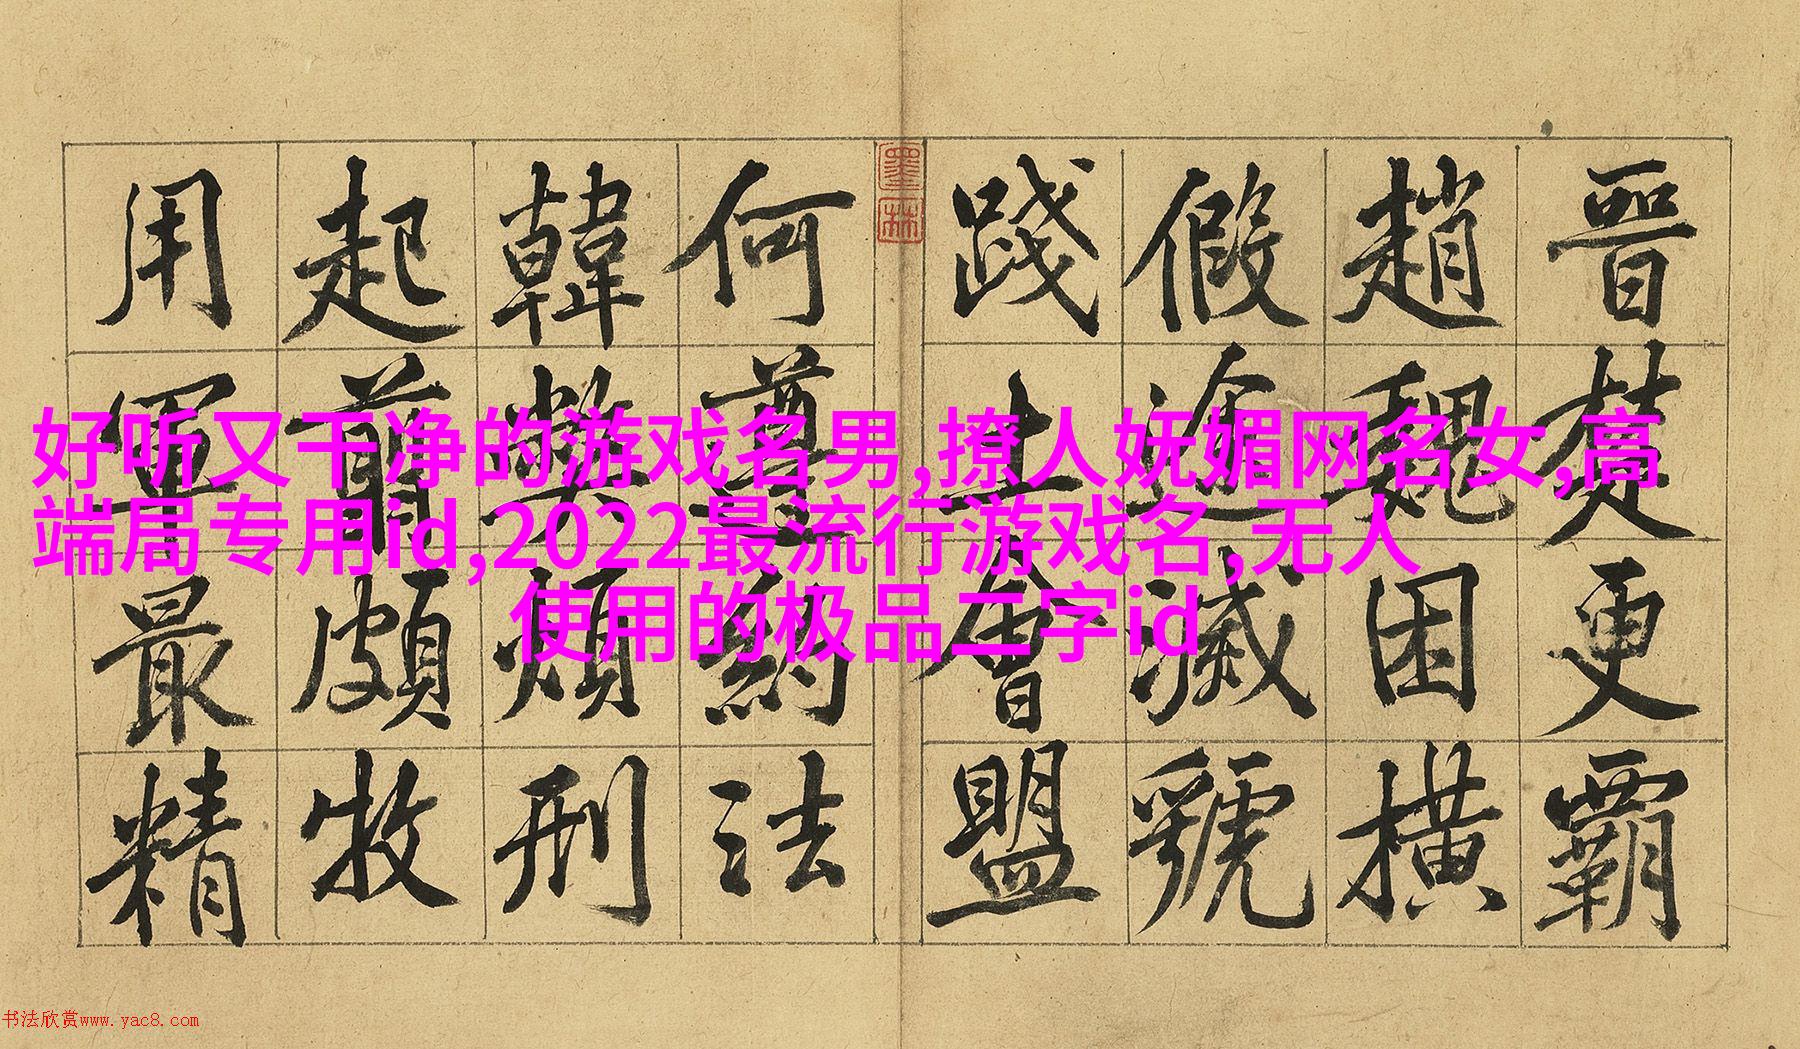 晉楚更霸
趙魏困橫
假途滅虢
踐土會盟
墨林
何遵約法
韓弊煩刑
起翦頗牧
用軍最精
好听又干净的游戏名男,撩人妩媚网名女,高
端局专用id,2022最流行游戏名,无人
使用的极品二字id
书法欣赏www.yac8.com